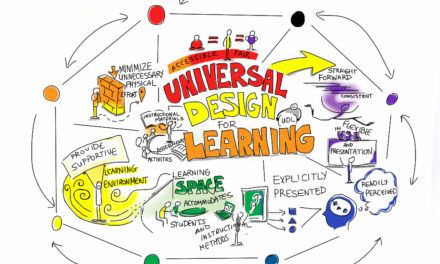 ACCESSIBLE FAIR
UNIVERSAL
DESIGN
FOR
LEARNING
UDL
STRAIGHT
FORWARD
CONSISTENT
FLEXIBLE
IN USE
AND
PRESENTATION
READILY
PERCEIVED
EXPLICITLY
PRESENTED
LEARNING
SPACE
ACCOMMODATES
STUDENTS
AND
INSTRUCTIONAL
METHODS
PROVIDE
SUPPORTIVE
LEARNING
ENVIRONMENT
INSTRUCTIONAL
MATERIALS
ACTIVITIES
MINIMIZE
UNNECESSARY
PHYSICAL
EFFORT